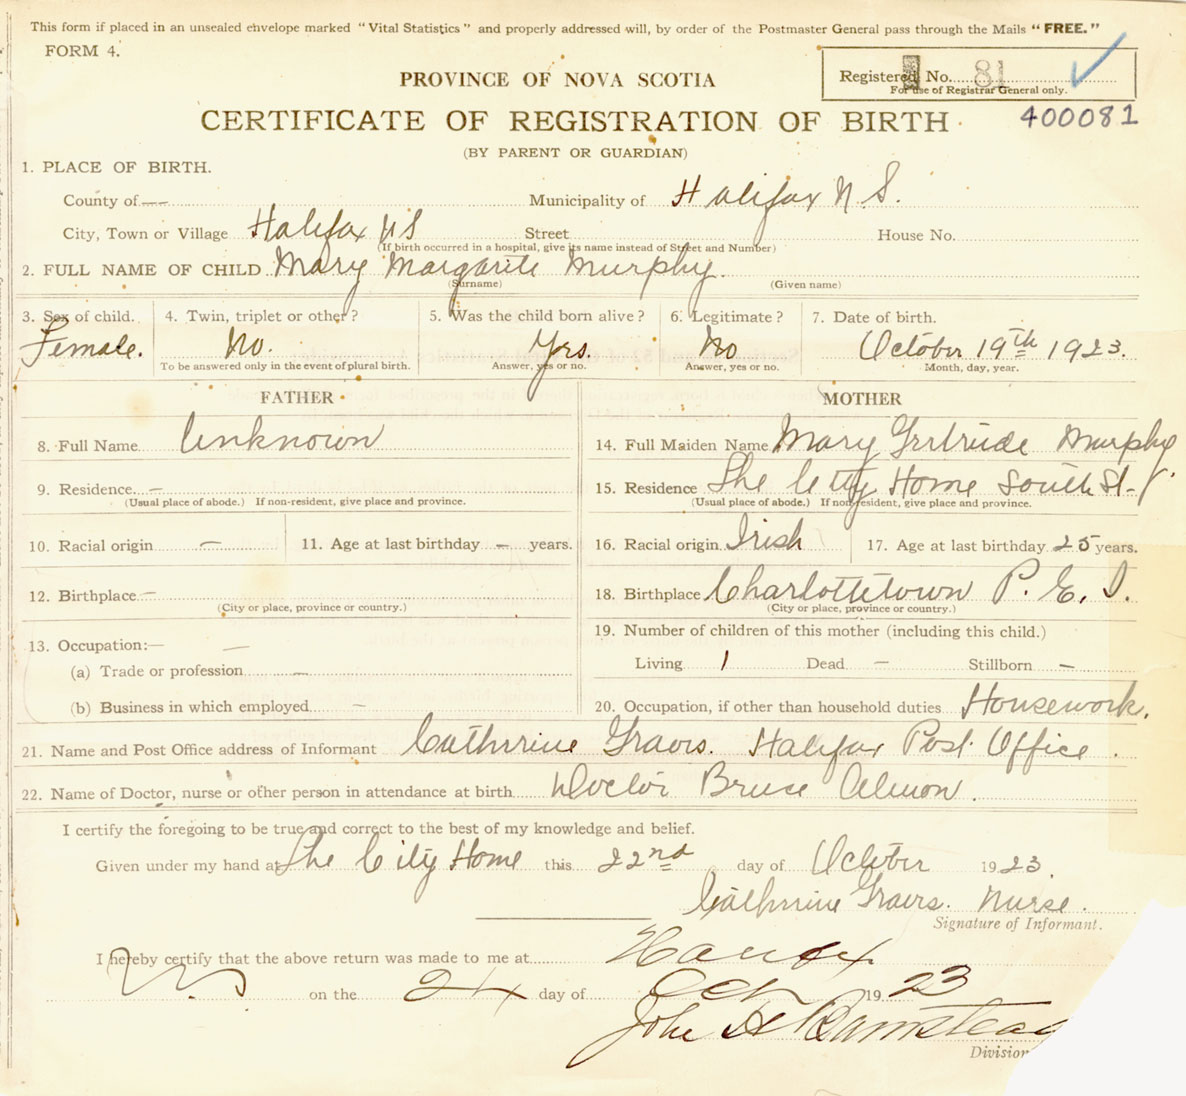 This form if placed in an unsealed envelope marked "Vital Statistics" and properly addressed will, by order of the Postmaster General pass through the Mails "FREE."
FORM 4.
Registered No. 81
For use of Registrar General only.
PROVINCE OF NOVA SCOTIA
CERTIFICATE OF REGISTRATION OF BIRTH
400081
(BY PARENT OR GUARDIAN)
1. PLACE OF BIRTH.
County of — Municipality of Halifax N.S.
City, Town or Village Halifax NS Street House No.
(If birth occurred in a hospital, give its name instead of Street and Number)
2. FULL NAME OF CHILD Mary Margarite Murphy.
(Surname) (Given name)
3. Sex of child. 4. Twin, triplet or other? 5. Was the child born alive? 6. Legitimate? 7. Date of birth.
Female. No. Yes. No October 19th 1923.
To be answered only in the event of plural birth. Answer, yes or no. Answer, yes or no. Month, day, year.
FATHER MOTHER
8. Full Name Unknown 14. Full Maiden Name Mary Gertrude Murphy.
9. Residence — 15. Residence The City Home South St-
(Usual place of abode.) If non-resident, give place and province. (Usual place of abode.) If non-resident, give place and province.
10. Racial origin — 11. Age at last birthday — years. 16. Racial origin Irish 17. Age at last birthday 25 years.
12. Birthplace — 18. Birthplace Charlottetown P. E. I.
(City or place, province or country.) (City or place, province or country.)
13. Occupation:— — 19. Number of children of this mother (including this child.)
(a) Trade or profession — Living 1 Dead — Stillborn —
(b) Business in which employed — 20. Occupation, if other than household duties Housework.
21. Name and Post Office address of Informant Catherine Graves. Halifax Post Office.
22. Name of Doctor, nurse or other person in attendance at birth Doctor Bruce Almon.
I certify the foregoing to be true and correct to the best of my knowledge and belief.
Given under my hand at The City Home this 22nd day of October 1923.
Catherine Graves. Nurse.
Signature of Informant.
I hereby certify that the above return was made to me at Halifax
on the 24 day of Oct 1923
John H Barnstead
Division